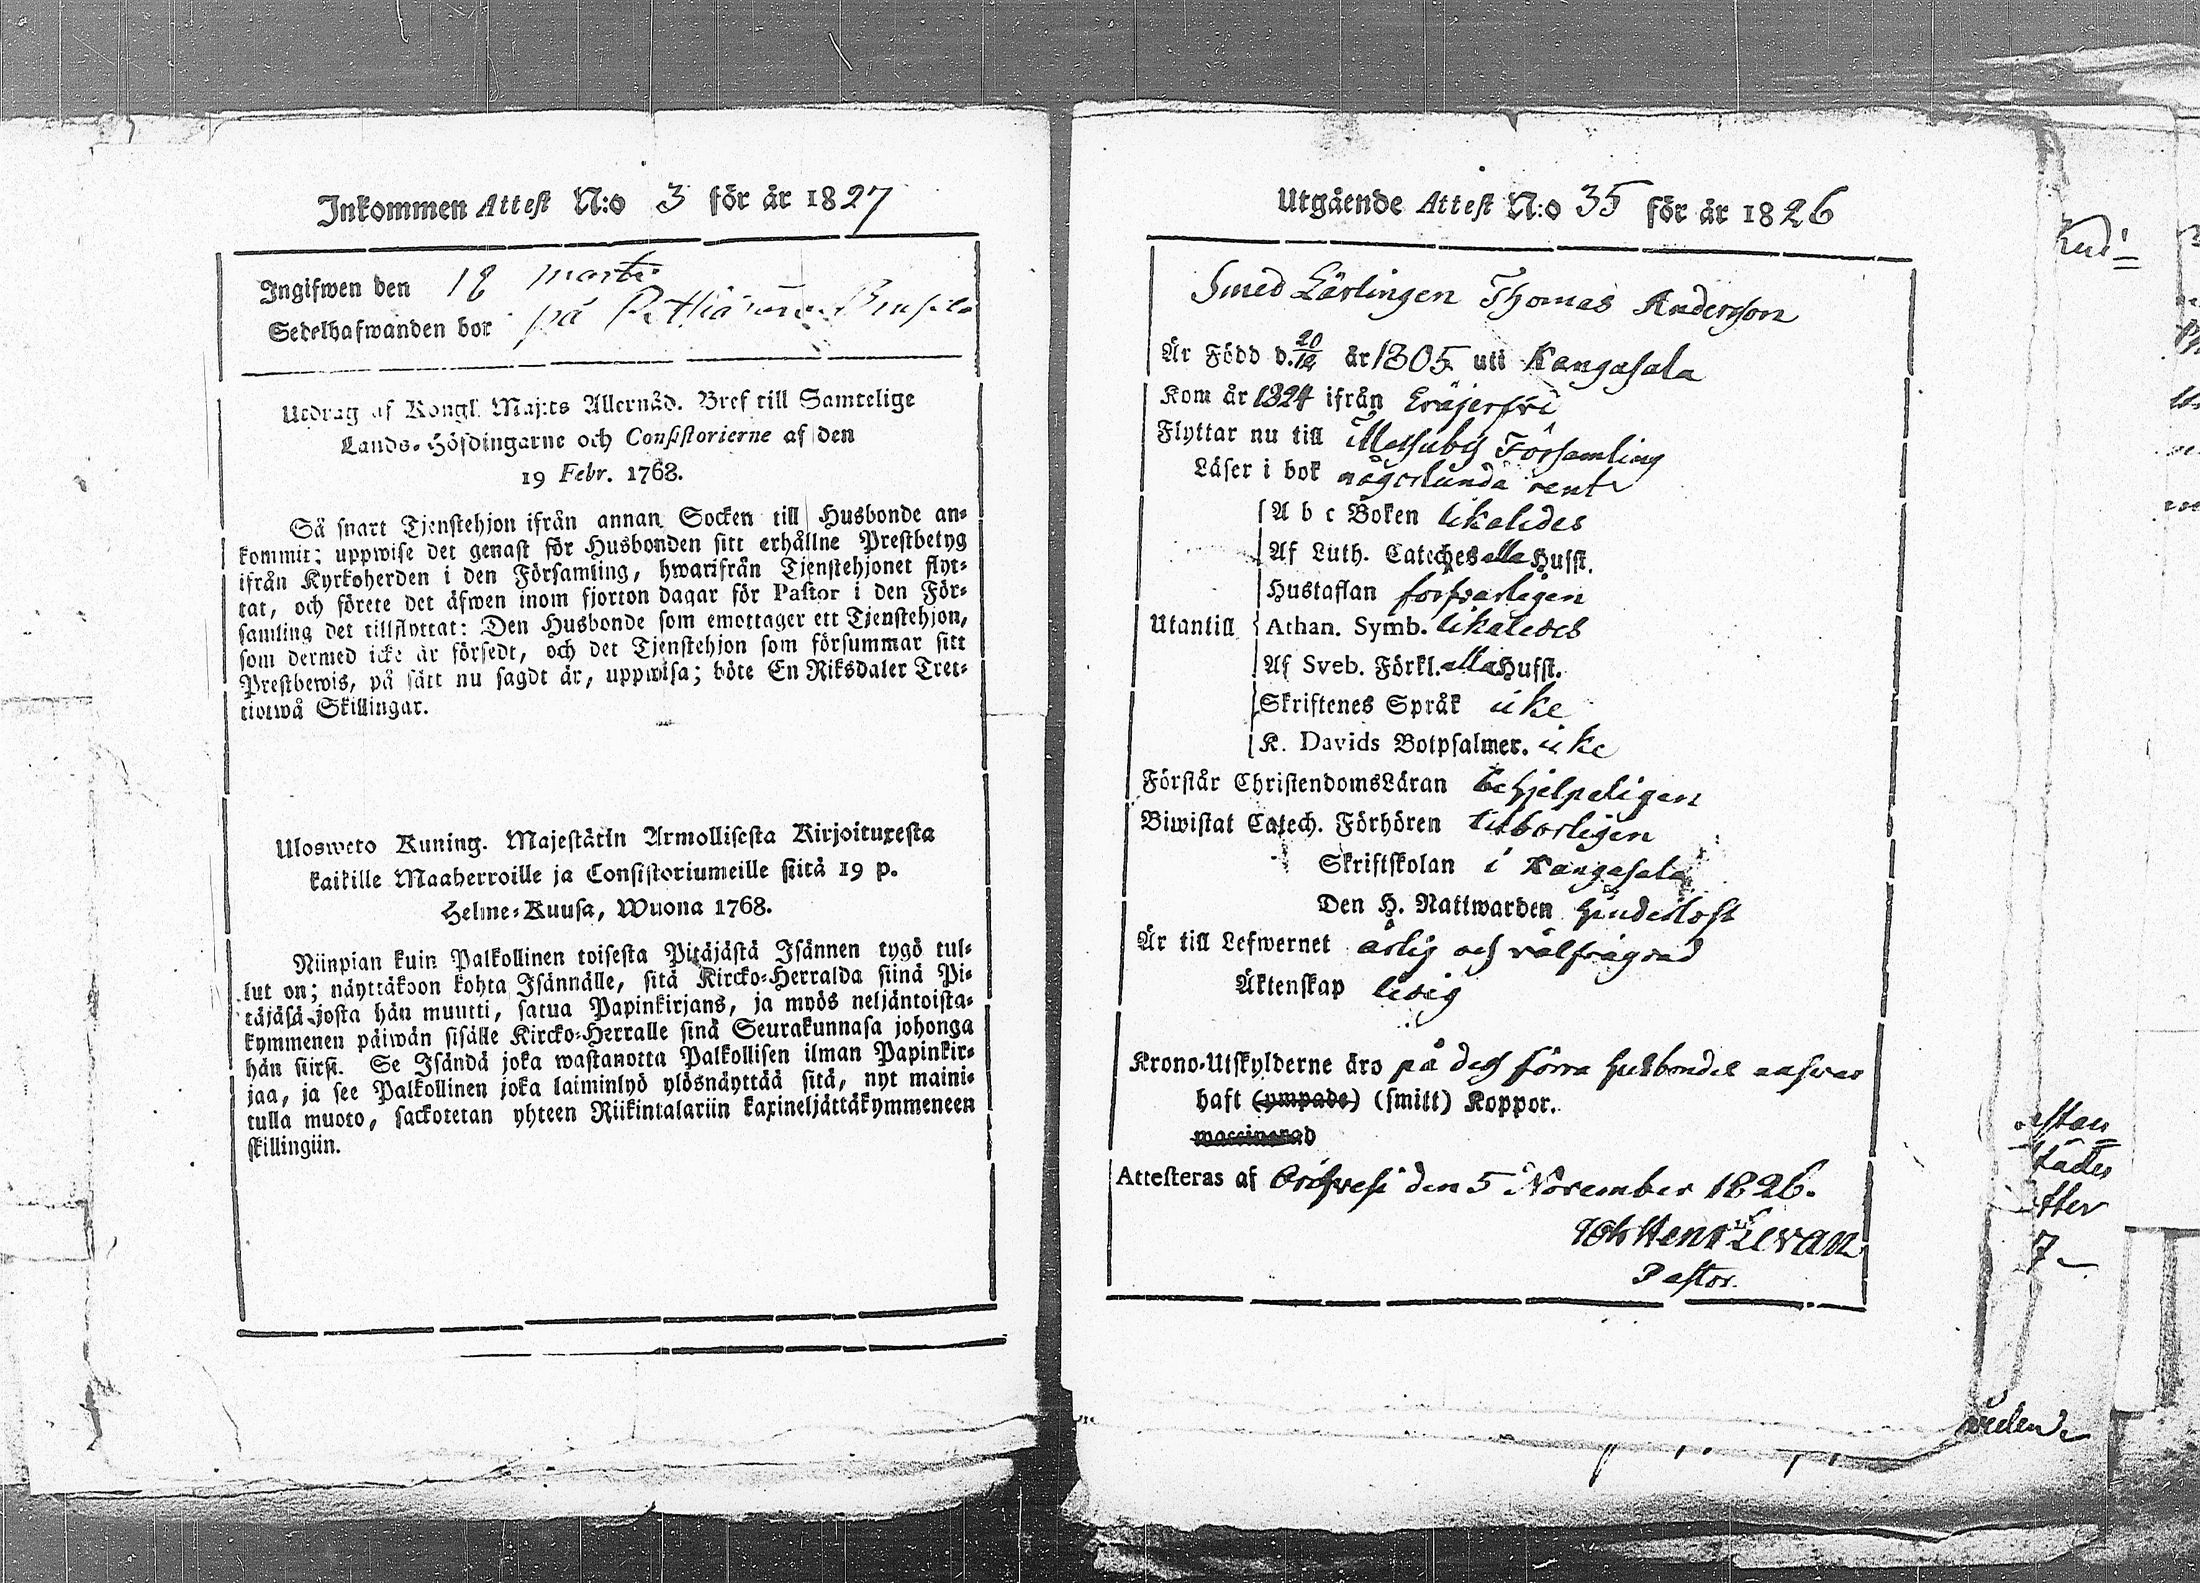 Inkommen Attest N:o 3 för år 1827
Ingifwen den 18 martii
Sedelhafwanden bor på
Utdrag af Kongl. Maj:ts Allernåd. Bref till Samtelige
Lands-Höfdingarne och Consistorierne af den
19 Febr. 1768.
Så snart Tjenstehjon ifrån annan Socken till Husbonde an-
kommit; uppwise det genast för Husbonden sitt erhållne Prestbetyg
ifrån Kyrkoherden i den Församling, hwarifrån Tjenstehjonet flyt-
tat, och förete det äfwen inom fjorton dagar för Pastor i den För-
samling det tillflyttat: Den Husbonde som emottager ett Tjenstehjon,
som dermed icke är försedt, och det Tjenstehjon som försummar sitt
Prestbewis, på sätt nu sagdt är, uppwisa; böte En Riksdaler Tret-
tiotwå Skillingar.
Ulosweto Kuning. Majestätin Armollisesta Kirjoituxesta
kaikille Maaherroille ja Consistoriumeille siitä 19 p.
Helme-Kuusa, Wuona 1768.
Niinpian kuin Palkollinen toisesta Pitäjästä Isännen tygö tul-
lut on; näyttäkoon kohta Isännälle, sitä Kircko-Herralda siinä Pi-
täjäsä josta hän muutti, satua Papinkirjans, ja myös neljäntoista-
kymmenen päiwän sisälle Kircko-Herralle sinä Seurakunnasa johonga
hän siirsi. Se Isändä joka wastanotta Palkollisen ilman Papinkir-
jaa, ja see Palkollinen joka laiminlyö ylösnäyttää sitä, nyt maini-
tulla muoto, sackotetan yhteen Riikintalariin kaxineljättäkymmeneen
skillingiin.
Utgående Attest N:o 35 för år 1826
Smed Lärlingen Thomas Andersson
Är Född d. 20/12 år 1805 uti Kangasala
Kom år 1824 ifrån Eräjerfvi
Flyttar nu till Messuby Församling
Läser i bok någorlunda rent
A b c Boken likaledes
Af Luth. Cateches alla Hufst.
Hustaflan försvarligen
Utantill Athan. Symb. likaledes
Af Sveb. Förkl. alla Hufst.
Skriftenes Språk icke
K. Davids Botpsalmer. icke
Förstår ChristendomsLäran behjelpeligen
Biwistat Catech. Förhören tilbörligen
Skriftskolan i Kangasala
Den H. Nattwarden hinderlöst
Är till Lefwernet ärlig och välfrägdad
Äktenskap ledig
Krono-Utskylderne äro på dess förra husbondes answar
haft (ympade) (smitt) Koppor.
waccinerad
Attesteras af Orihvesi den 5 November 1826.
Joh Henr Levan
Pastor.